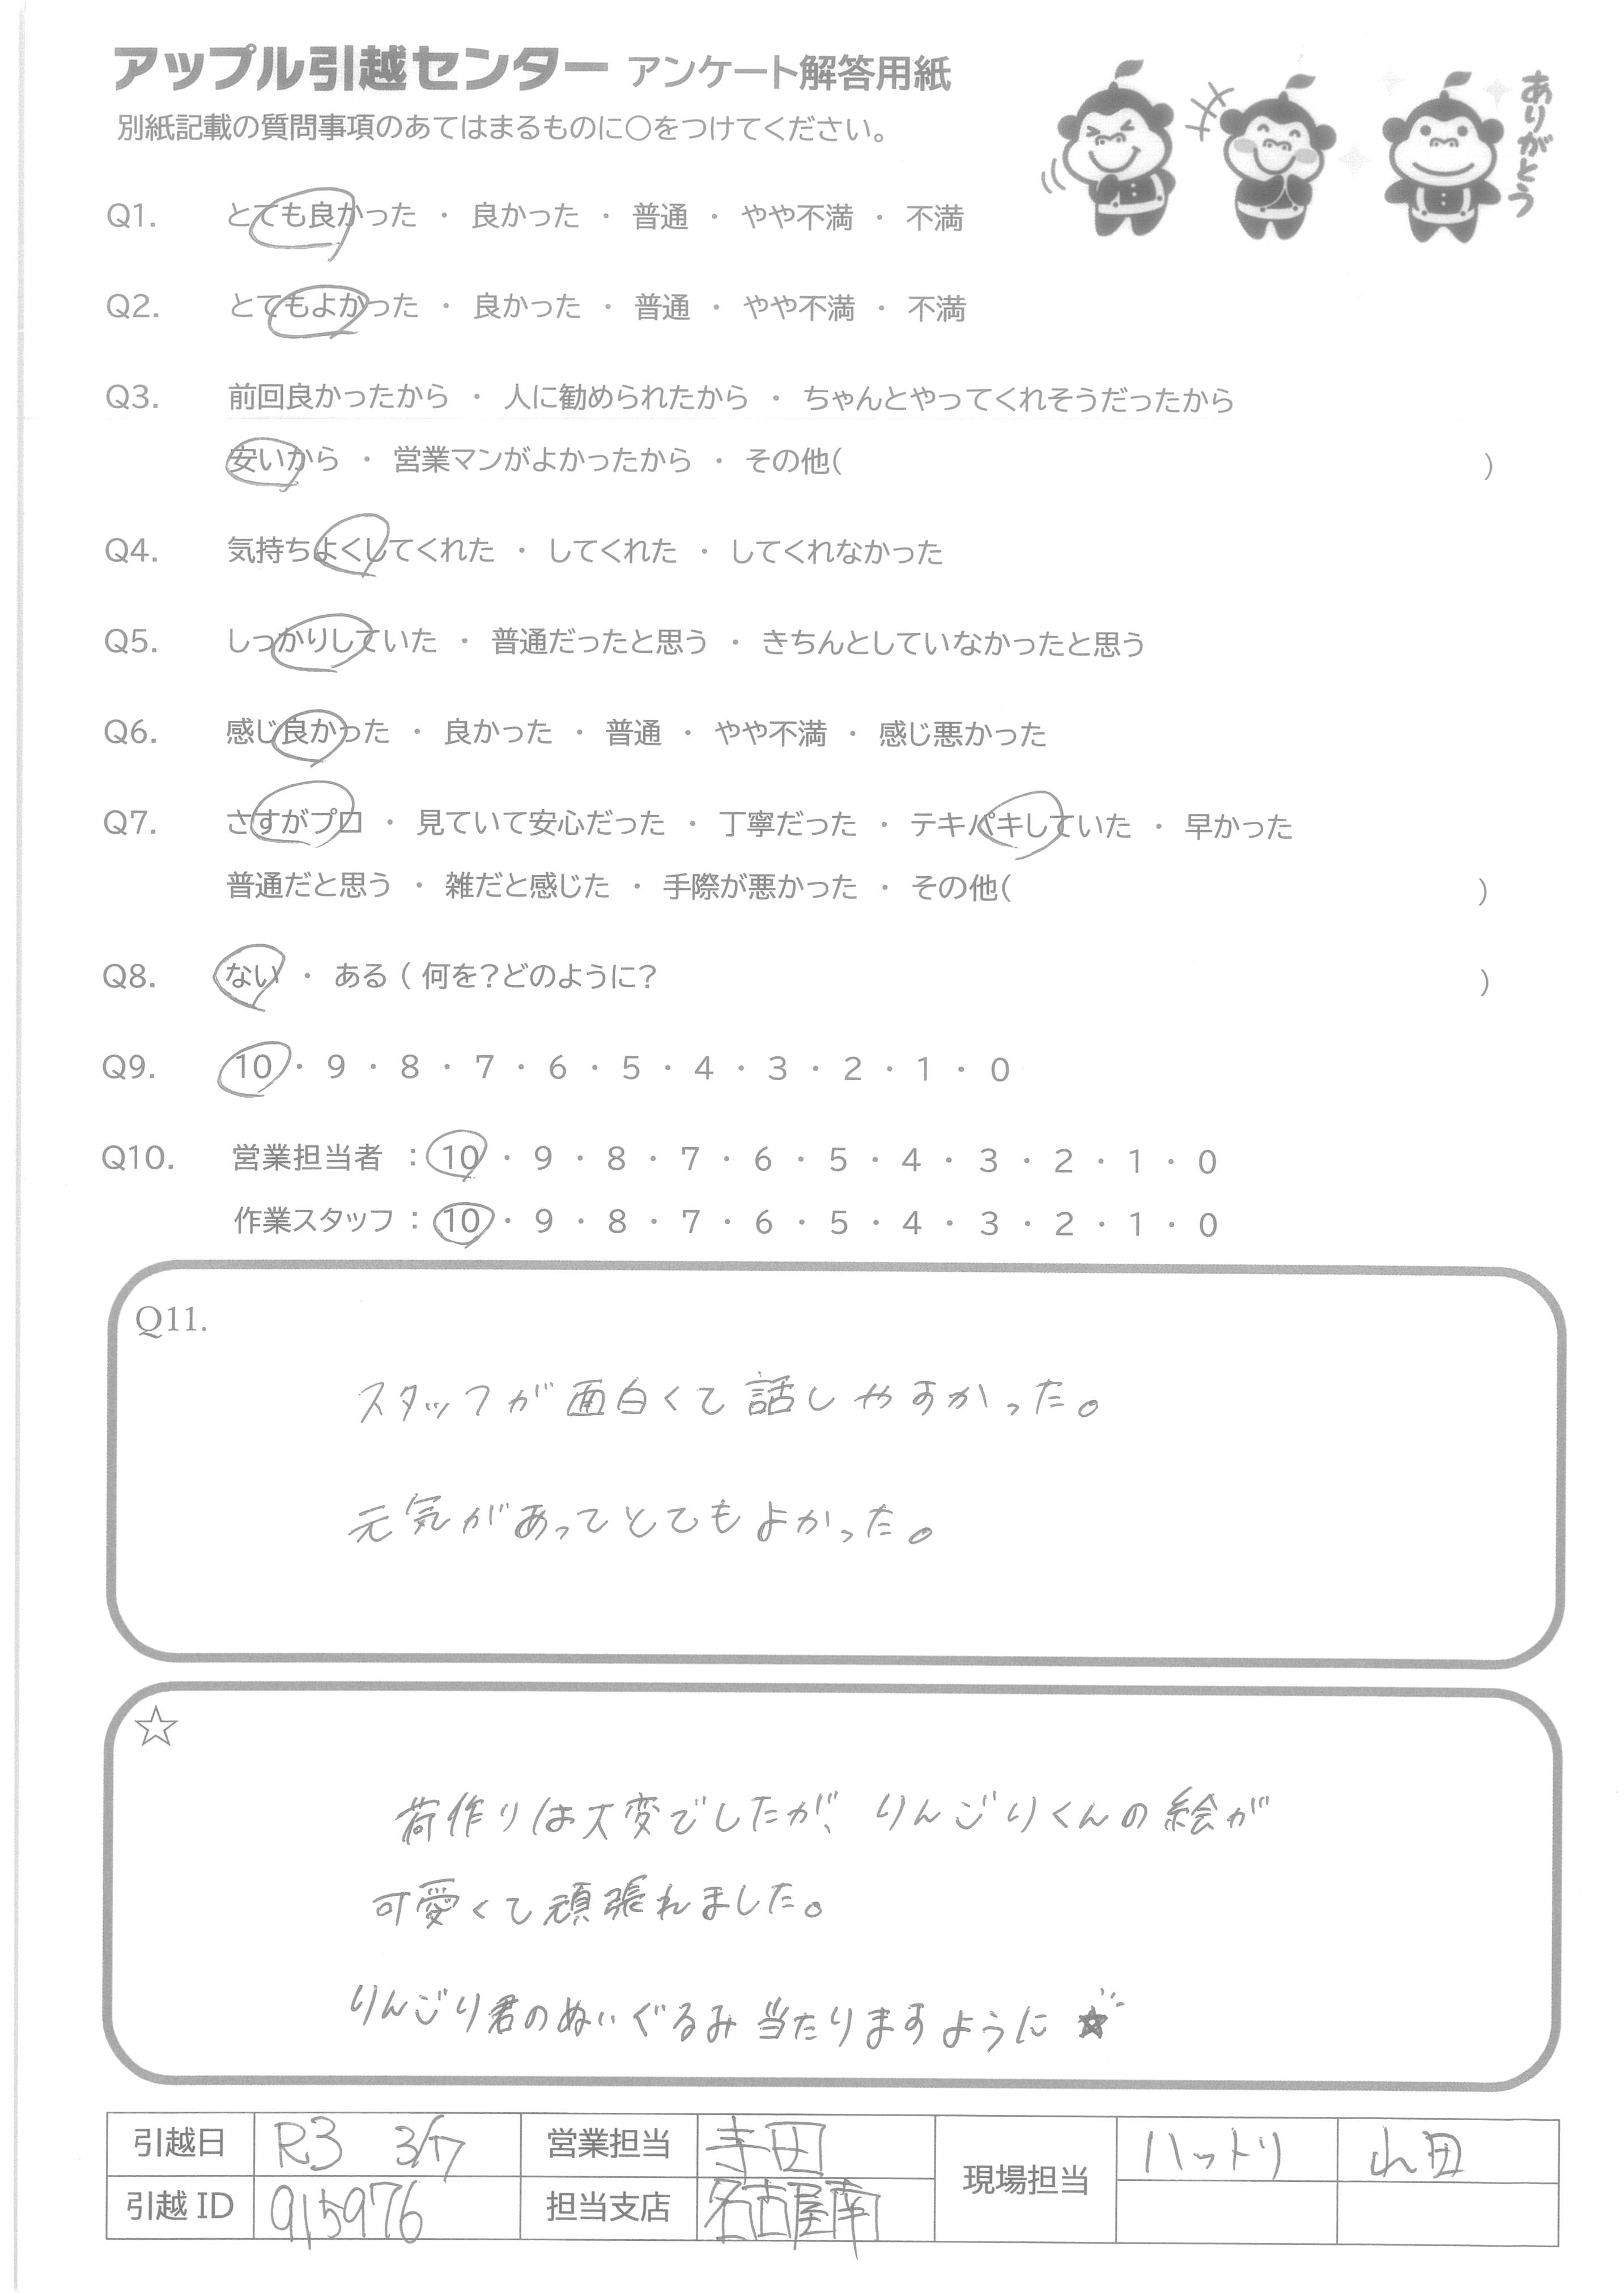 アップル引越センター アンケート解答用紙
別紙記載の質問事項のあてはまるものに○をつけてください。
ありがとう
Q1. とても良かった ・ 良かった ・ 普通 ・ やや不満 ・ 不満
Q2. とてもよかった ・ 良かった ・ 普通 ・ やや不満 ・ 不満
Q3. 前回良かったから ・ 人に勧められたから ・ ちゃんとやってくれそうだったから
安いから ・ 営業マンがよかったから ・ その他( )
Q4. 気持ちよくしてくれた ・ してくれた ・ してくれなかった
Q5. しっかりしていた ・ 普通だったと思う ・ きちんとしていなかったと思う
Q6. 感じ良かった ・ 良かった ・ 普通 ・ やや不満 ・ 感じ悪かった
Q7. さすがプロ ・ 見ていて安心だった ・ 丁寧だった ・ テキパキしていた ・ 早かった
普通だと思う ・ 雑だと感じた ・ 手際が悪かった ・ その他( )
Q8. ない ・ ある ( 何を?どのように? )
Q9. 10 ・ 9 ・ 8 ・ 7 ・ 6 ・ 5 ・ 4 ・ 3 ・ 2 ・ 1 ・ 0
Q10. 営業担当者 : 10 ・ 9 ・ 8 ・ 7 ・ 6 ・ 5 ・ 4 ・ 3 ・ 2 ・ 1 ・ 0
作業スタッフ : 10 ・ 9 ・ 8 ・ 7 ・ 6 ・ 5 ・ 4 ・ 3 ・ 2 ・ 1 ・ 0
Q11.
スタッフが面白くて話しやすかった。
元気があってとてもよかった。
☆
荷作りは大変でしたが、りんごりくんの絵が
可愛くて頑張れました。
りんごり君のぬいぐるみ当たりますように★
引越日 R3 3/17 営業担当 寺田 現場担当 ハットリ 山田
引越ID 915976 担当支店 名古屋南